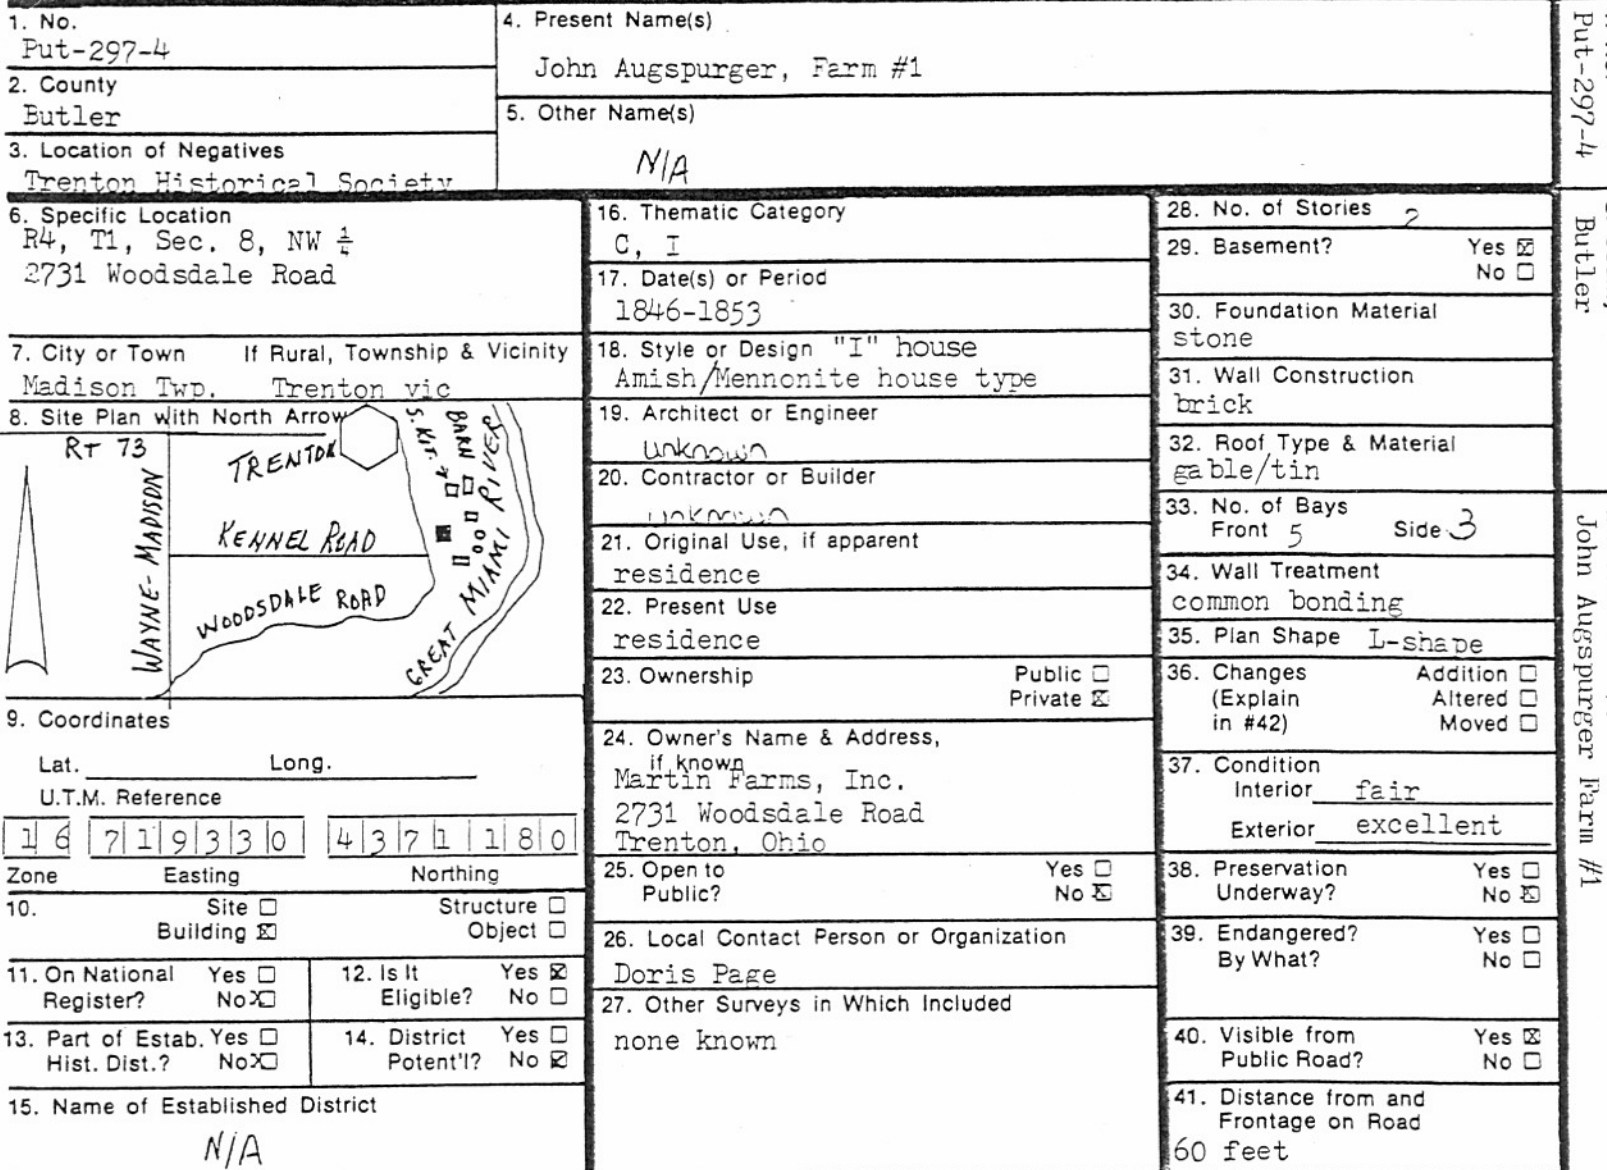 1. No.
Put-297-4
2. County
Butler
3. Location of Negatives
Trenton Historical Society
4. Present Name(s)
John Augspurger, Farm #1
5. Other Name(s)
N/A
6. Specific Location
R4, T1, Sec. 8, NW ¼
2731 Woodsdale Road
7. City or Town If Rural, Township & Vicinity
Madison Twp. Trenton vic
8. Site Plan with North Arrow
RT 73
TRENTON
WAYNE-MADISON
KENNEL ROAD
WOODSDALE ROAD
S. KIT.
BARN
GREAT MIAMI RIVER
9. Coordinates
Lat. Long.
U.T.M. Reference
16 719330 4371180
Zone Easting Northing
10. Site ☐ Structure ☐
Building ☒ Object ☐
11. On National Yes ☐
Register? No ☒
12. Is It Yes ☒
Eligible? No ☐
13. Part of Estab. Yes ☐
Hist. Dist.? No ☒
14. District Yes ☐
Potent'l? No ☒
15. Name of Established District
N/A
16. Thematic Category
C, I
17. Date(s) or Period
1846-1853
18. Style or Design "I" house
Amish/Mennonite house type
19. Architect or Engineer
unknown
20. Contractor or Builder
unknown
21. Original Use, if apparent
residence
22. Present Use
residence
23. Ownership Public ☐
Private ☒
24. Owner's Name & Address,
if known
Martin Farms, Inc.
2731 Woodsdale Road
Trenton, Ohio
25. Open to Yes ☐
Public? No ☒
26. Local Contact Person or Organization
Doris Page
27. Other Surveys in Which Included
none known
28. No. of Stories 2
29. Basement? Yes ☒
No ☐
30. Foundation Material
stone
31. Wall Construction
brick
32. Roof Type & Material
gable/tin
33. No. of Bays
Front 5 Side 3
34. Wall Treatment
common bonding
35. Plan Shape L-shape
36. Changes Addition ☐
(Explain Altered ☐
in #42) Moved ☐
37. Condition
Interior fair
Exterior excellent
38. Preservation Yes ☐
Underway? No ☒
39. Endangered? Yes ☐
By What? No ☐
40. Visible from Yes ☒
Public Road? No ☐
41. Distance from and
Frontage on Road
60 feet
Put-297-4
Butler
John Augspurger Farm #1